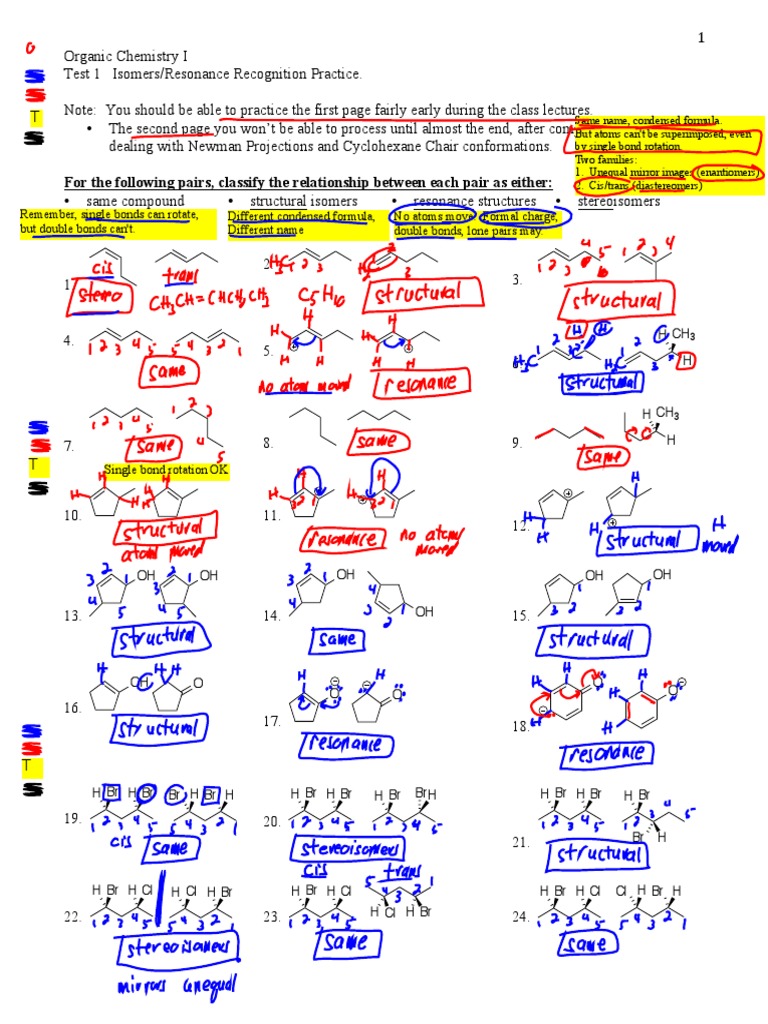 1
Organic Chemistry I
Test 1 Isomers/Resonance Recognition Practice.
T
Note: You should be able to practice the first page fairly early during the class lectures.
• The second page you won't be able to process until almost the end, after
dealing with Newman Projections and Cyclohexane Chair conformations.
Same name, condensed formula.
But atoms can't be superimposed, even
by single bond rotation.
Two families:
1. Unequal mirror images (enantiomers)
2. Cis/trans (diastereomers)
For the following pairs, classify the relationship between each pair as either:
• same compound • structural isomers • resonance structures • stereoisomers
Remember, single bonds can rotate,
but double bonds can't.
Different condensed formula,
Different name
No atoms move. Formal charge,
double bonds, lone pairs may.
1. cis trans
stereo
CH3CH=CHCH2CH3
2. H3C 1 2 3
C5H10
structural
3. 1 2 3 4 5 6 1 2 3 4
structural
4. 1 2 3 4 5 5 4 3 2 1
same
5. H H H H H H
no atom moved
resonance
6. H3C 1 2 3 H H H3C 1 2 3 H CH3 H
structural
7. 1 2 3 4 5 1 2 3 4 5
same
Single bond rotation OK
8. same
9. H CH3 H
same
T
10. H H H H
structural
atom moved
11. H H 3 2 1 H H 3 2 1
resonance
no atoms moved
12. H H H H
structural
H moved
13. OH 1 2 3 4 5 OH 1 2 3 4 5
structural
14. OH 1 2 3 4 OH 1 2 3 4
same
15. OH 1 2 3 OH 1 2 3
structural
16. H OH H H O
structural
17. H O H O
resonance
18. H H O H H O
resonance
T
19. H Br H Br 1 2 3 4 5 Br H Br H 5 4 3 2 1
cis
same
20. H Br H Br 1 2 3 4 5 H Br Br H 1 2 3 4 5
stereoisomers
cis trans
21. H Br H Br 1 2 3 4 5 H Br Br H 1 2 3 4 5
structural
22. H Br H Cl 1 2 3 4 5 H Cl H Br 5 4 3 2 1
stereoisomers
mirrors unequal
23. H Br H Cl 1 2 3 4 5 5 4 3 2 1 H Cl H Br
same
24. H Br H Cl 1 2 3 4 5 Cl H Br H 5 4 3 2 1
same